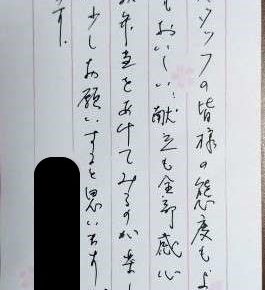 タッフの皆様の態度もよ
もおいしい、献立も全部感心
弁当をあけてみるのが楽し
少しお願いすると思います
です。